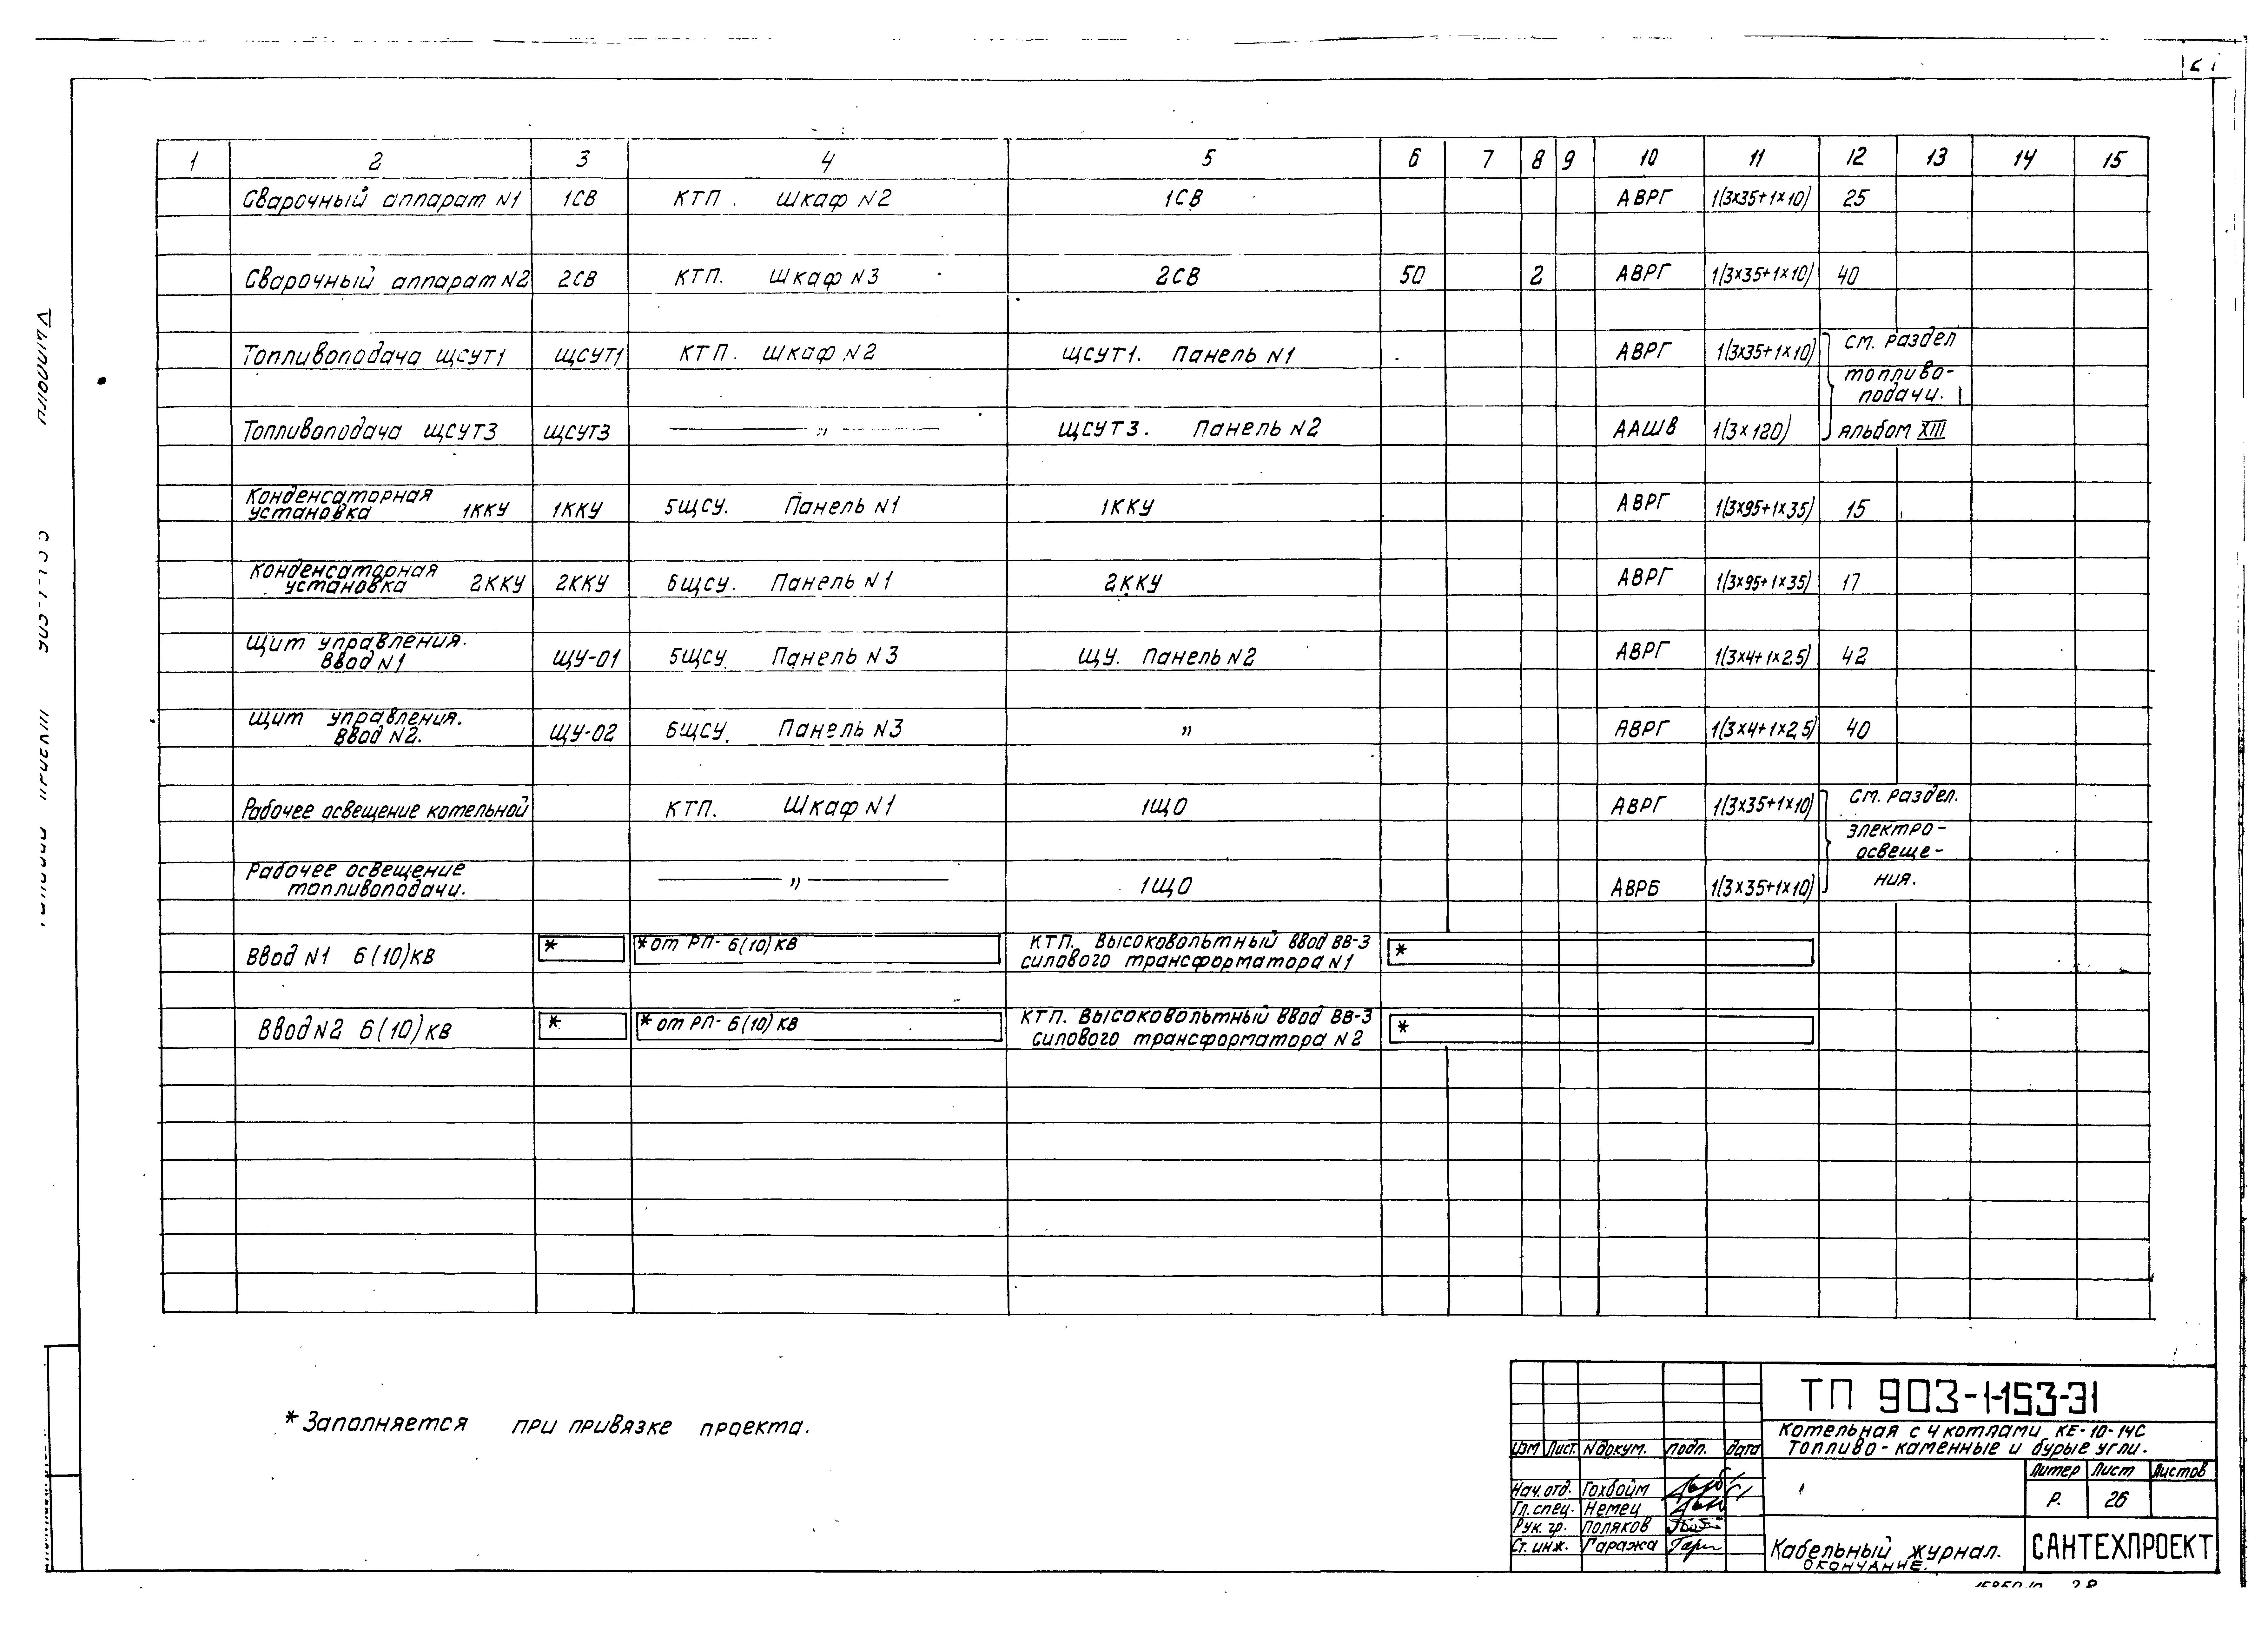 1 2 3 4 5 6 7 8 9 10 11 12 13 14 15
Сварочный аппарат N1 1СВ КТП. Шкаф N2 1СВ АВРГ 1(3х35+1х10) 25
Сварочный аппарат N2 2СВ КТП. Шкаф N3 2СВ 50 2 АВРГ 1(3х35+1х10) 40
Топливоподача ЩСУТ1 ЩСУТ1 КТП. Шкаф N2 ЩСУТ1. Панель N1 АВРГ 1(3х35+1х10) см. раздел
топливо-
подачи.
Топливоподача ЩСУТ3 ЩСУТ3 — " — ЩСУТ3. Панель N2 ААШВ 1(3х120) Альбом XIII
Конденсаторная
установка 1ККУ 1ККУ 5ЩСУ. Панель N1 1ККУ АВРГ 1(3х95+1х35) 15
Конденсаторная
установка 2ККУ 2ККУ 6ЩСУ. Панель N1 2ККУ АВРГ 1(3х95+1х35) 17
Щит управления.
Ввод N1 ЩУ-01 5ЩСУ. Панель N3 ЩУ. Панель N2 АВРГ 1(3х4+1х2.5) 42
Щит управления.
Ввод N2. ЩУ-02 6ЩСУ. Панель N3 " АВРГ 1(3х4+1х2,5) 40
Рабочее освещение котельной КТП. Шкаф N1 1ЩО АВРГ 1(3х35+1х10) см. раздел.
электро-
освеще-
Рабочее освещение
топливоподачи. — " — 1ЩО АВРБ 1(3х35+1х10) ния.
Ввод N1 6(10)КВ * * от РП- 6(10)КВ КТП. Высоковольтный ввод ВВ-3
силового трансформатора N1 *
Ввод N2 6(10)КВ * * от РП- 6(10)КВ КТП. Высоковольтный ввод ВВ-3
силового трансформатора N2 *
* Заполняется при привязке проекта.
ТП 903-1-153-Э1
Котельная с 4 котлами КЕ-10-14С
Топливо - каменные и бурые угли.
Изм Лист. N докум. подп. дата
Литер Лист Листов
Р. 26
Нач. отд. Гохбойм
Гл. спец. Немец
Рук. гр. Поляков
Ст. инж. Гаража
Кабельный журнал.
ОКОНЧАНИЕ.
САНТЕХПРОЕКТ